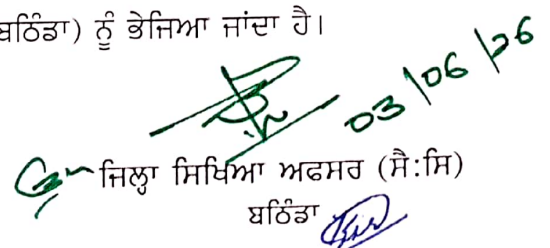 ਬਠਿੰਡਾ) ਨੂੰ ਭੇਜਿਆ ਜਾਂਦਾ ਹੈ।
03/06/26
ਜਿਲ੍ਹਾ ਸਿਖਿਆ ਅਫਸਰ (ਸੈ:ਸਿ)
ਬਠਿੰਡਾ